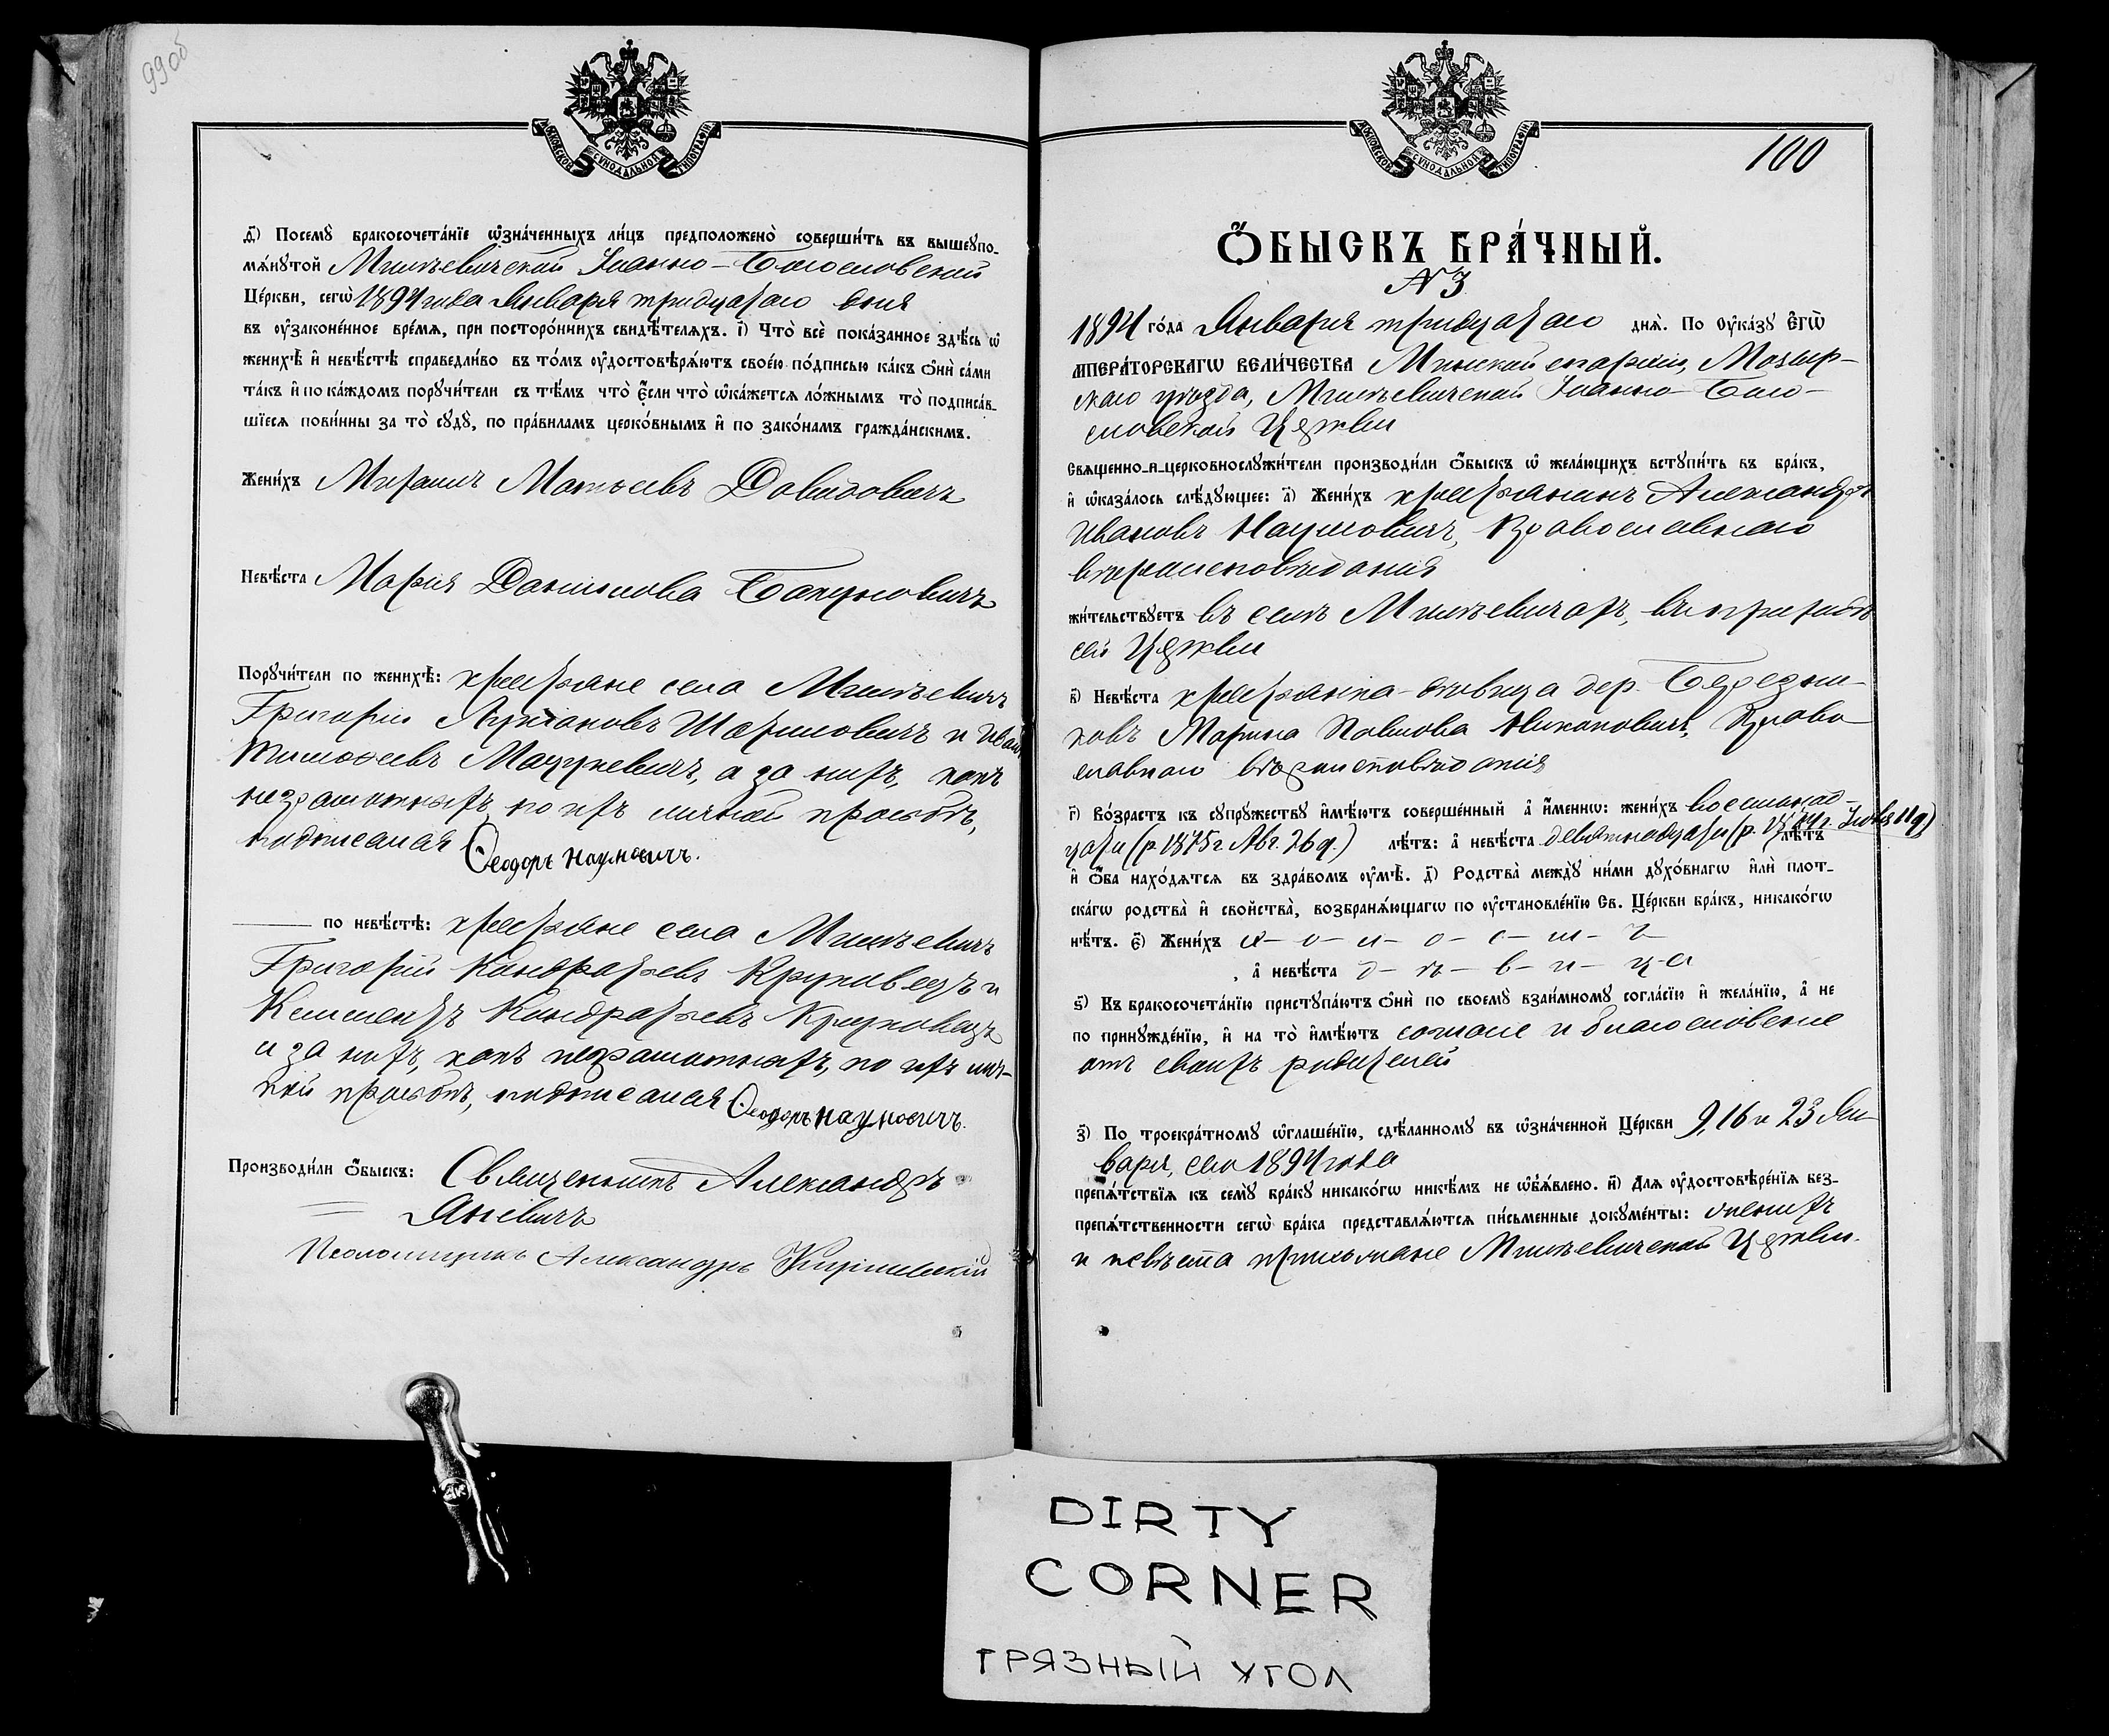 99об
МОСКОВСКОЙ СѴНОДАЛЬНОЙ ТИПОГРАФІИ
д҃) Посемꙋ̀ бракосочета́нїе ѡ҆зна́ченныхъ ли́цъ предположено̀ соверши́ть въ вышеꙋпо-
мѧ́нꙋтой Мишевичской Іоанно-Богословской
Це́ркви, сегѡ̀ 1894 года Января тридцатаго дня
въ ᲂу҆законе́нное вре́мѧ, при посторо́ннихъ свидѣ́телѧхъ. і҃) Что̀ всѐ пока́занное здѣ́сь ѡ҆
женихѣ̀ и҆ невѣ́стѣ справедли́во въ то́мъ ᲂу҆достовѣрѧ́ютъ свое́ю по́дписью ка́къ ѻ҆нѝ са́ми
та́къ и҆ по ка́ждомъ порꙋчи́тели съ тѣ́мъ что̀ є҆́сли что̀ ѡ҆ка́жетсѧ ло́жнымъ то̀ подписа́в-
шїесѧ пови́нны за то̀ сꙋдꙋ̀, по пра́виламъ церко́внымъ и҆ по зако́намъ гражда́нскимъ.
Жени́хъ Матвѣевъ Давидовичъ
Невѣ́ста Марія Даниилова Бакуновичъ
Порꙋчи́тели по женихѣ̀: крестьяне села Мишевичъ
Григорій Лукіановъ и Иванъ
Тимоѳеевъ Мацукевичъ, а за нихъ, какъ
неграмотныхъ, по ихъ личной просьбѣ,
подписался Ѳеодоръ Наумовичъ.
по невѣ́стѣ: крестьяне села Мишевичъ
Григорій Кондратьевъ Круковецъ и
Климентъ Кондратьевъ Круковецъ
а за нихъ, какъ неграмотныхъ, по ихъ лич-
ной просьбѣ, подписался Ѳеодоръ Наумовичъ.
Производи́ли ѻ҆́быскъ: Священникъ Александръ
Яневичъ
Псаломщикъ Александръ
МОСКОВСКОЙ СѴНОДАЛЬНОЙ ТИПОГРАФІИ
100
Ѻ҆́БЫСКЪ БРА́ЧНЫЙ.
№ 3
1894 го́да Января тридцатаго днѧ̀. По ᲂу҆ка́зꙋ Є҆гѡ̀
И҆МПЕРА́ТОРСКАГѠ ВЕЛИ́ЧЕСТВА Минской епархіи, Мозыр-
скаго уѣзда, Мишевичской Іоанно-Бого-
словской Церкви
Свѧщенно-и-церковнослꙋжи́тели производи́ли ѻ҆́быскъ ѡ҆ жела́ющихъ встꙋпи́ть въ бра́къ,
и҆ ѡ҆каза́лось слѣ́дꙋющее: а҃) Жени́хъ крестьянинъ Александръ
Ивановъ Наумовичъ, Православнаго
вѣроисповѣданія
жи́тельствꙋетъ въ селѣ Мишевичахъ, въ приходѣ
сей Церкви
в҃) Невѣ́ста крестьянка-дѣвица дер. Березни-
ковъ Марина Павлова Никановичъ, Право-
славнаго вѣроисповѣданія
г҃) Во́зрастъ къ сꙋпрꙋ́жествꙋ и҆мѣ́ютъ соверше́нный а҆ и҆́меннѡ: жени́хъ восемнад-
цати (р. 1875 г. Авг. 26 д.) лѣ́тъ: а҆ невѣ́ста девятнадцати (р. Іюля 11 д) лѣ́тъ
и҆ ѻ҆́ба нахо́дѧтсѧ въ здра́вомъ ᲂу҆мѣ̀. д҃) Родства̀ междꙋ̀ ни́ми дꙋхо́внагѡ и҆лѝ плот-
ска́гѡ родства̀ и҆ свойства̀, возбранѧ́ющагѡ по ᲂу҆становле́нїю Св. Це́ркви бра́къ, никако́гѡ
нѣ́тъ. є҃) Жени́хъ х- о- л- о- с- т- ъ-
, а҆ невѣ́ста д- ѣ- в- и- ц-а
ѕ҃) Къ бракосочета́нїю пристꙋпа́ютъ ѻ҆нѝ по своемꙋ̀ взаи́мномꙋ согла́сїю и҆ жела́нїю, а҆ не
по принꙋжде́нїю, и҆ на то̀ и҆мѣ́ютъ согласіе и благословеніе
отъ своихъ родителей
з҃) По троекра́тномꙋ ѡ҆глаше́нїю, сдѣ́ланномꙋ въ ѡ҆зна́ченной Це́ркви 9, 16 и 23 Ян-
варя, сего 1894 года
препѧ́тствїѧ къ семꙋ̀ бра́кꙋ никако́гѡ никѣ́мъ не ѡ҆б̾ѧ́влено. и҃) Длѧ ᲂу҆достовѣре́нїѧ без-
препѧ́тственности сегѡ̀ бра́ка представлѧ́ютсѧ пи́сьменные докꙋме́нты: женихъ
и невѣста прихожане Мишевичской Церкви.
DIRTY
CORNER
ГРЯЗНЫЙ УГОЛ